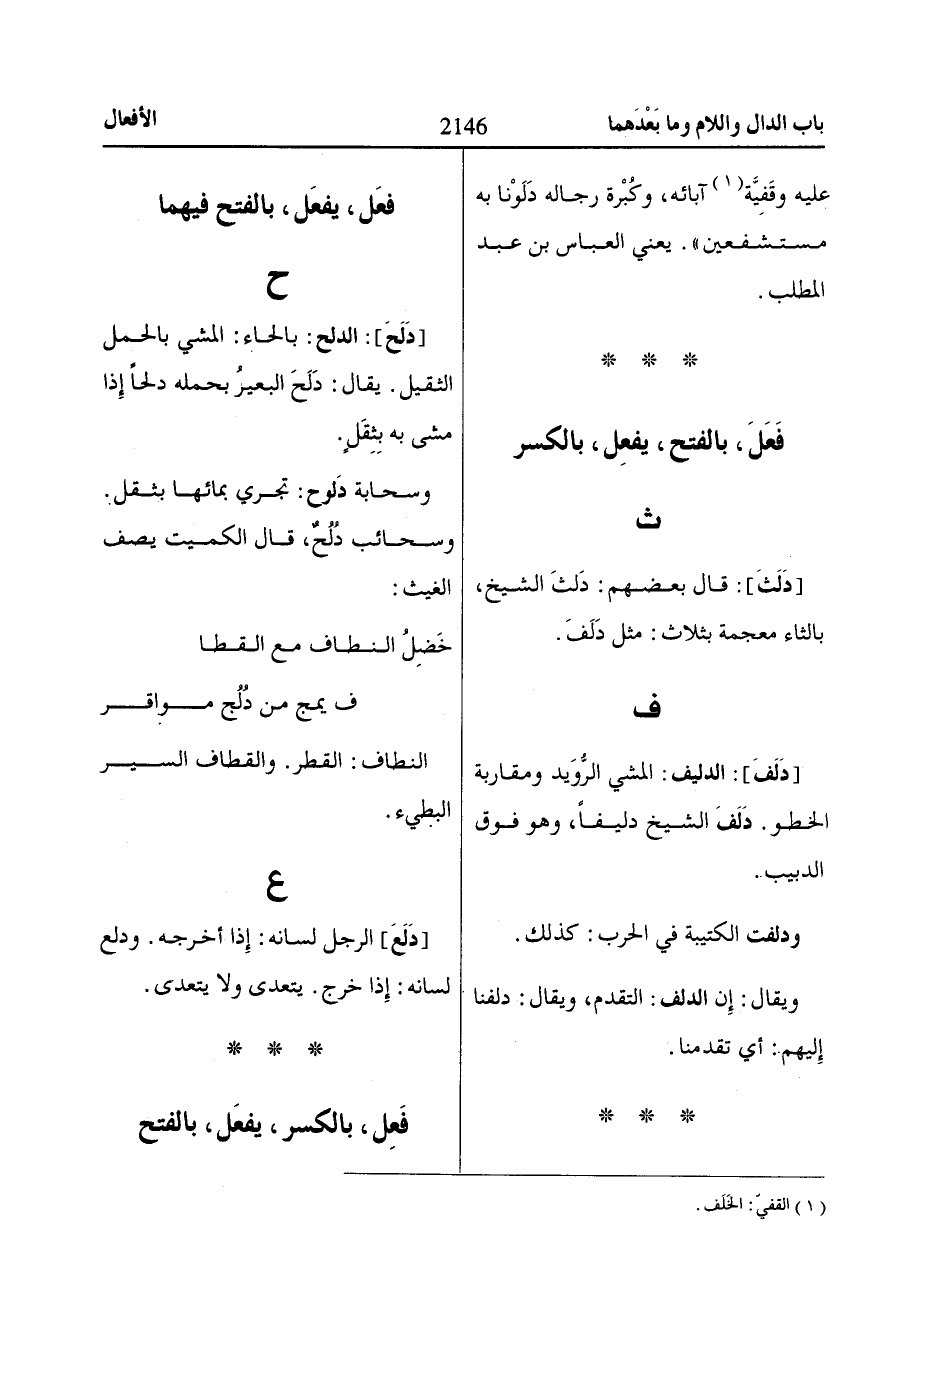 باب الدال واللام وما بَعْدَهما
2146
الأفعال
عليه وقَفِيَّة(١) آبائه، وكُبْرة رجاله دَلَوْنا به
مستشفعين». يعني العباس بن عبد
المطلب.
* * *
فَعَلَ، بالفتح، يفعِل، بالكسر
ث
[دَلَثَ]: قال بعضهم: دَلثَ الشيخ،
بالثاء معجمة بثلاث: مثل دَلَفَ.
ف
[دَلَفَ]: الدليف: المشي الرُّوَيد ومقاربة
الخطو. دَلَفَ الشيخ دليفاً، وهو فوق
الدبيب.
ودلفت الكتيبة في الحرب: كذلك.
ويقال: إن الدلف: التقدم، ويقال: دلفنا
إليهم: أي تقدمنا.
* * *
فعَل، يفعَل، بالفتح فيهما
ح
[دَلَحَ]: الدلح: بالحاء: المشي بالحمل
الثقيل. يقال: دَلَحَ البعيرُ بحمله دلحاً إذا
مشى به بِثِقَلٍ.
وسحابة دَلوح: تجري بمائها بثقل.
وسحائب دُلُحٌ، قال الكميت يصف
الغيث:
خَضِلُ النطاف مع القطا
ف يمج من دُلُج مواقر
النطاف: القطر. والقطاف السير
البطيء.
ع
[دَلَعَ] الرجل لسانه: إذا أخرجه. ودلع
لسانه: إذا خرج. يتعدى ولا يتعدى.
* * *
فَعِل، بالكسر، يفعَل، بالفتح
(١) القفيّ: الخَلَف.